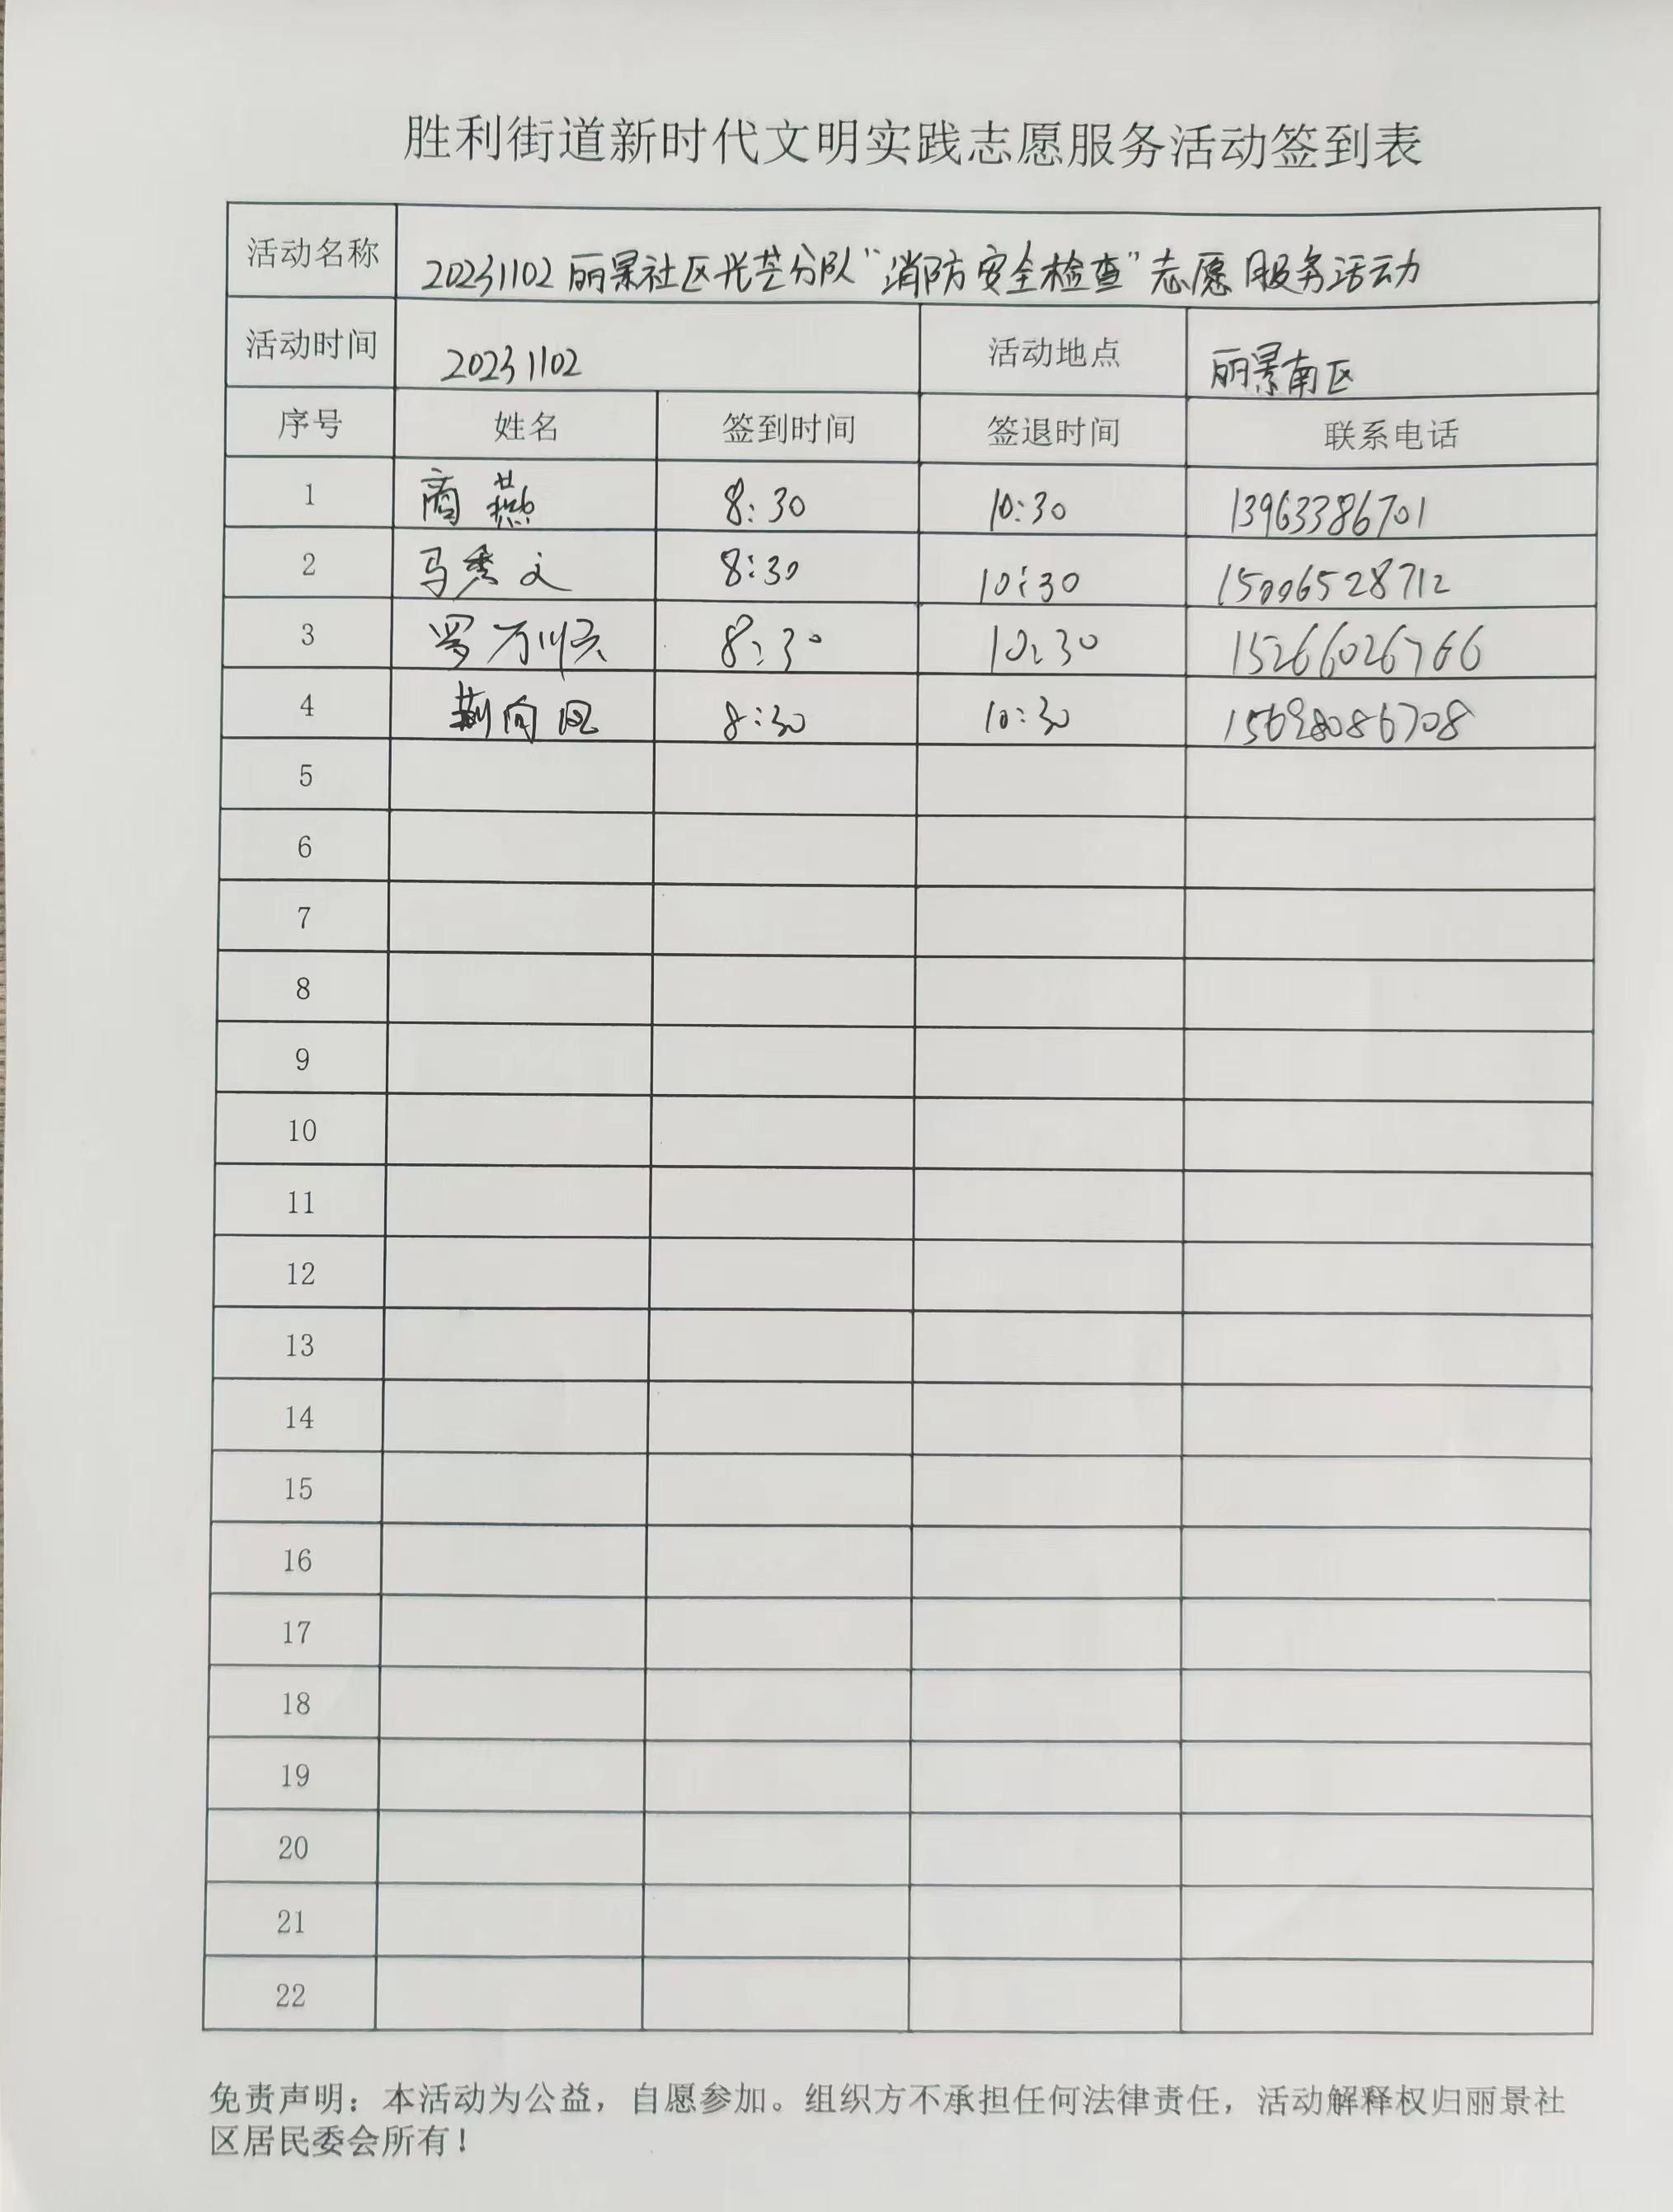 胜利街道新时代文明实践志愿服务活动签到表
活动名称 20231102丽景社区光芒分队“消防安全检查”志愿服务活动
活动时间 20231102 活动地点 丽景南区
序号 姓名 签到时间 签退时间 联系电话
1 商燕 8:30 10:30 13963386701
2 马秀文 8:30 10:30 15006528712
3 罗万顺 8:30 10:30 15266026766
4 荆向 8:30 10:30 15698086708
5
6
7
8
9
10
11
12
13
14
15
16
17
18
19
20
21
22
免责声明：本活动为公益，自愿参加。组织方不承担任何法律责任，活动解释权归丽景社
区居民委会所有！